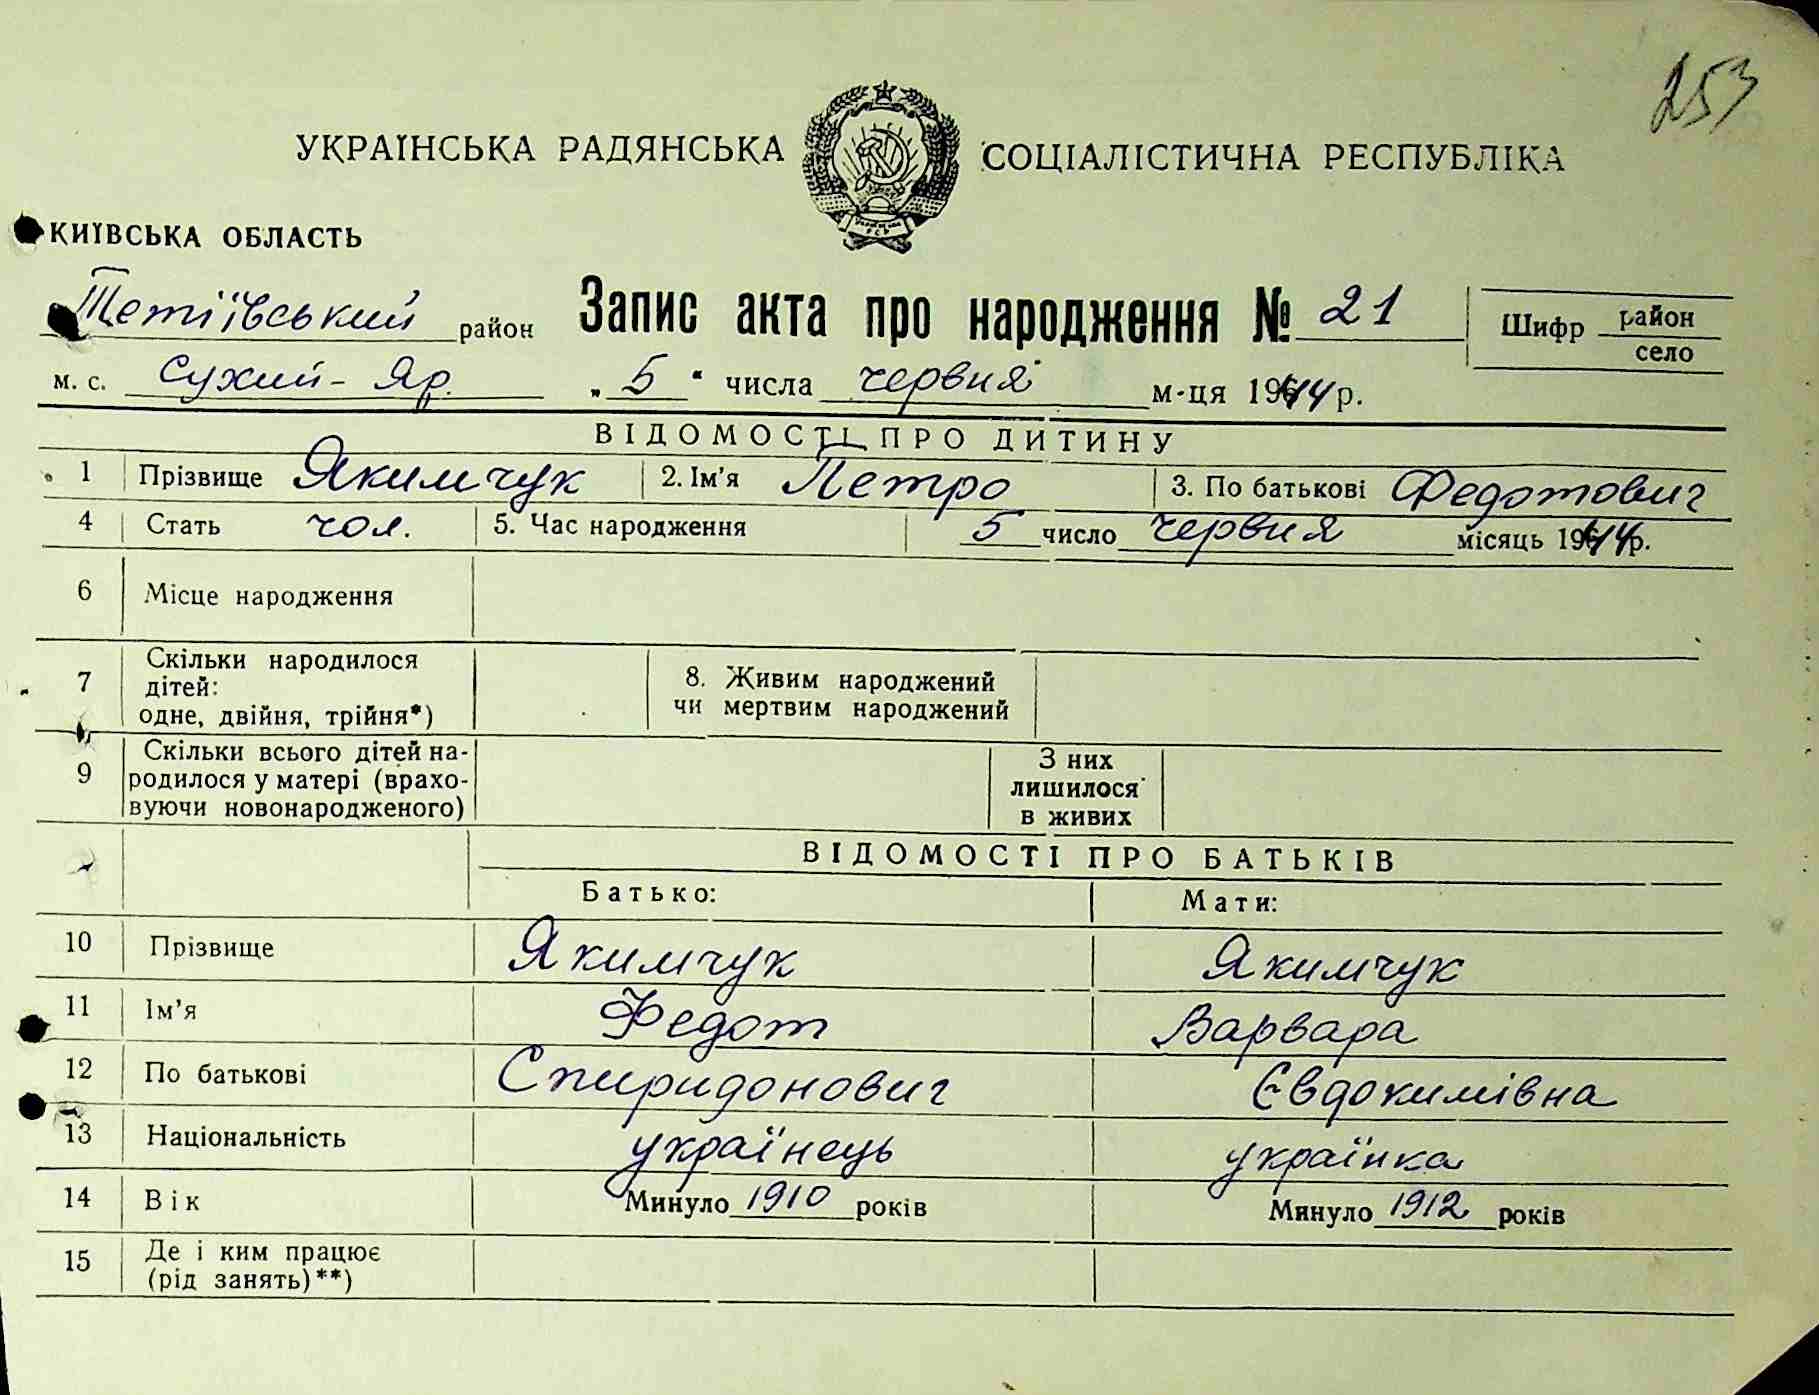 253
УКРАЇНСЬКА РАДЯНСЬКА СОЦІАЛІСТИЧНА РЕСПУБЛІКА
КИЇВСЬКА ОБЛАСТЬ
Тетіївський район Запис акта про народження № 21 Шифр район
село
м. с. Сухий-Яр. „5“ числа червня м-ця 1944 р.
ВІДОМОСТІ ПРО ДИТИНУ
1 Прізвище Якимчук 2. Ім'я Петро 3. По батькові Федотович
4 Стать чол. 5. Час народження 5 число червня місяць 1944р.
6 Місце народження
7 Скільки народилося дітей: одне, двійня, трійня*) 8. Живим народжений чи мертвим народжений
9 Скільки всього дітей народилося у матері (враховуючи новонародженого) З них лишилося в живих
ВІДОМОСТІ ПРО БАТЬКІВ
Батько: Мати:
10 Прізвище Якимчук Якимчук
11 Ім'я Федот Варвара
12 По батькові Спиридонович Євдокимівна
13 Національність українець українка
14 Вік Минуло 1910 років Минуло 1912 років
15 Де і ким працює (рід занять)**)